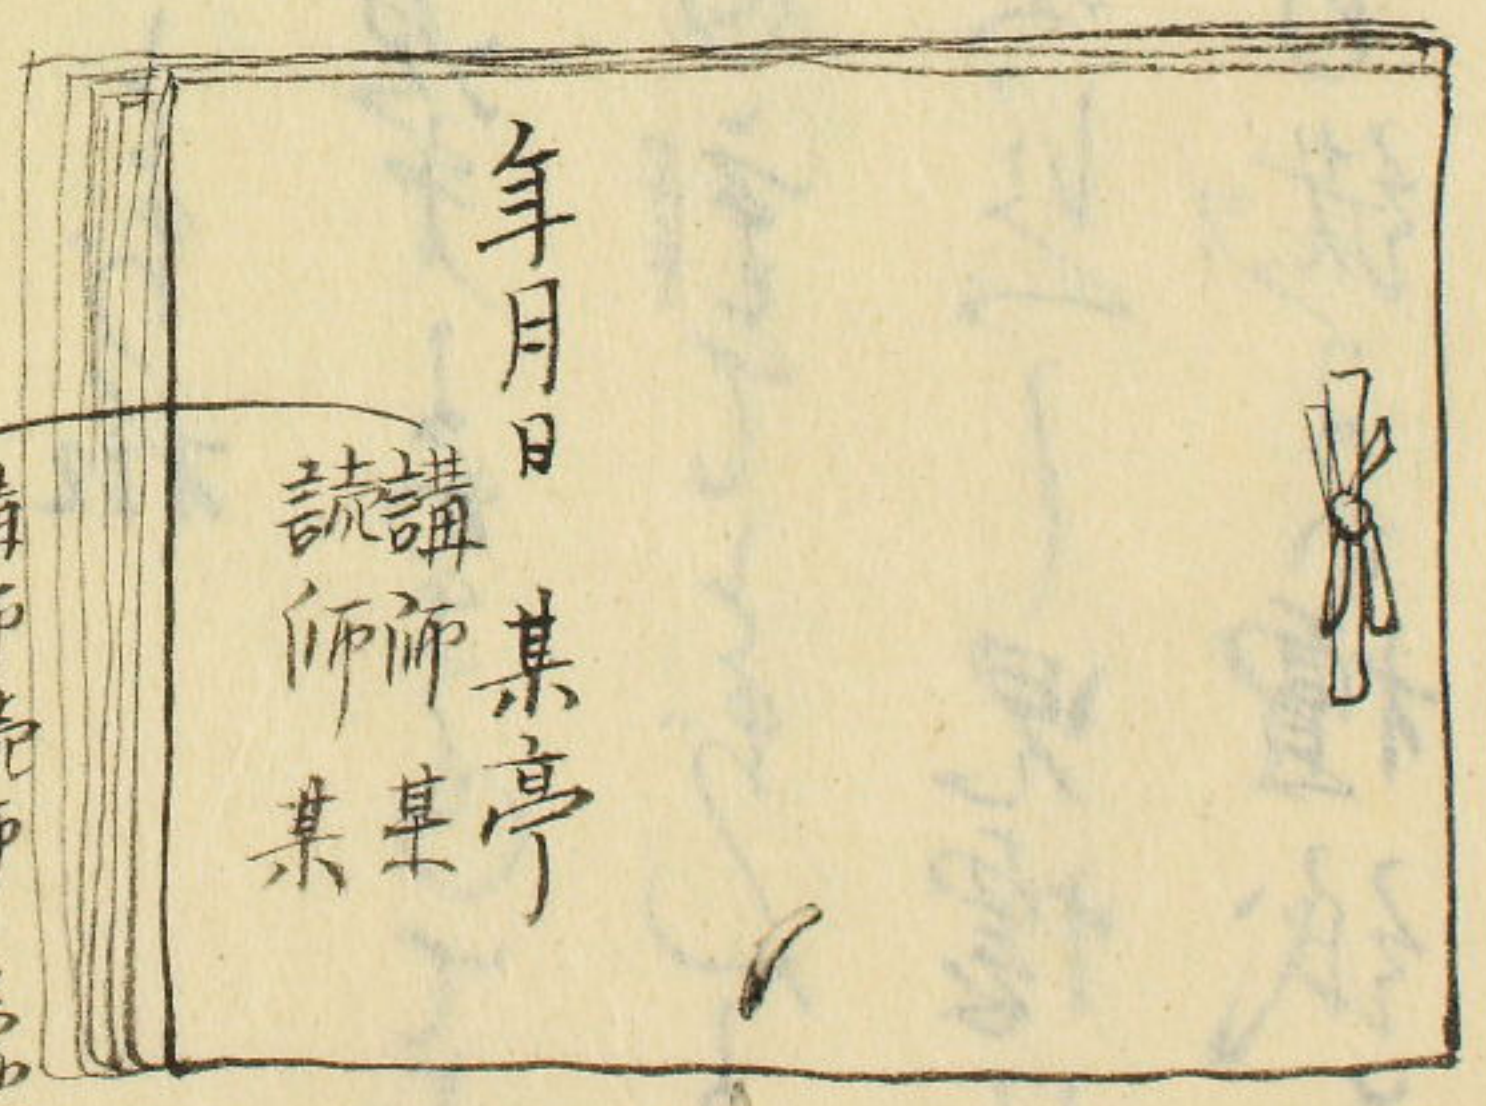 年月日 某亭
講師 某
読師 某